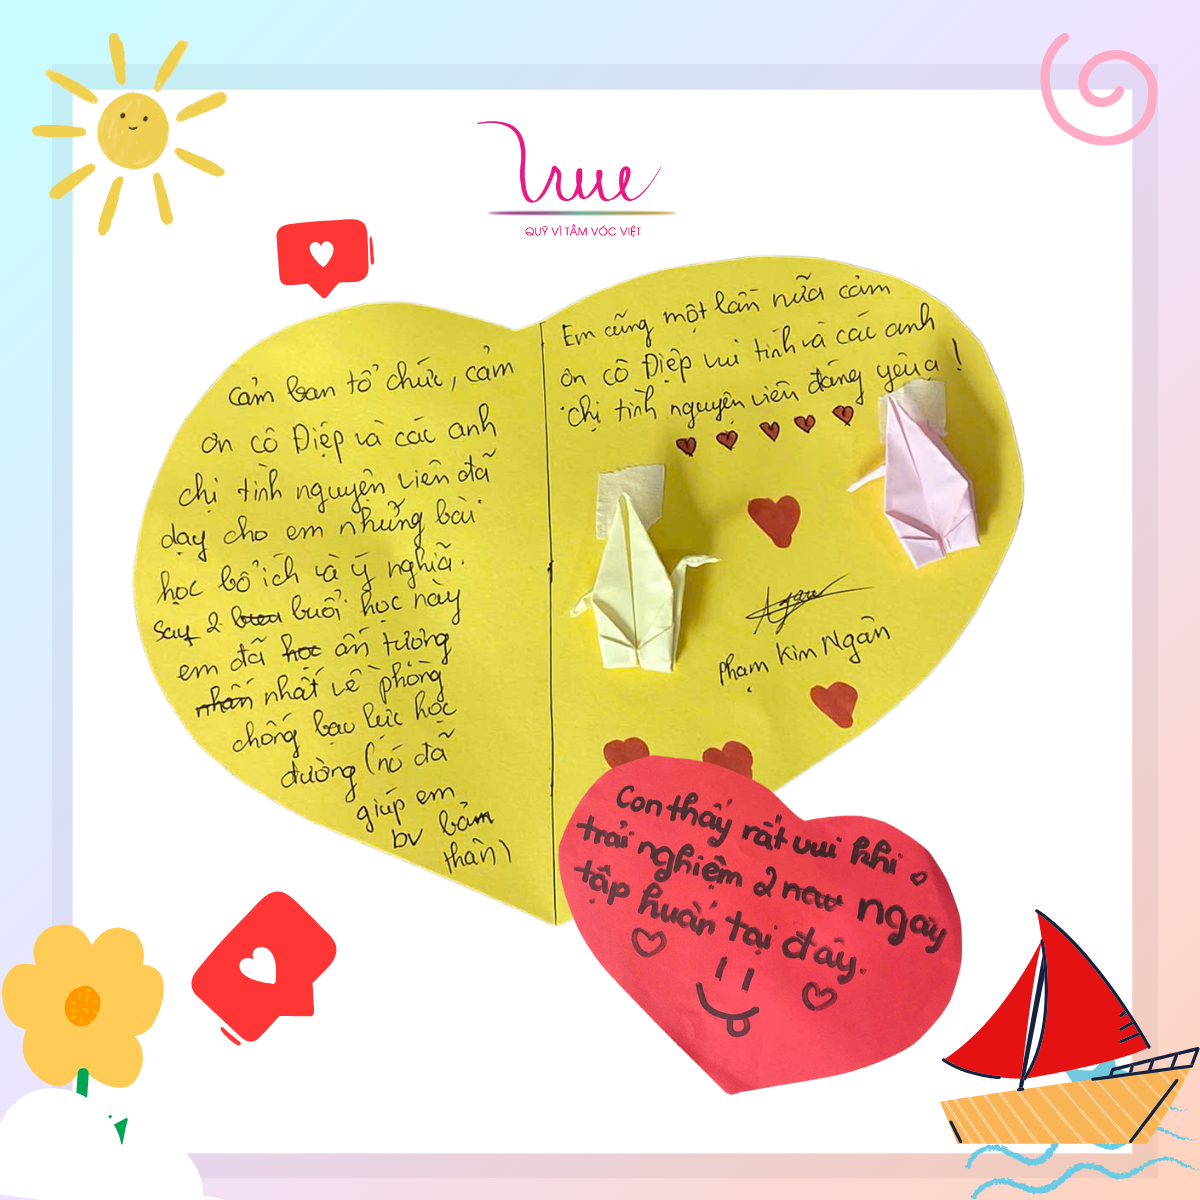 True
QUỸ VÌ TẦM VÓC VIỆT
Cảm ban tổ chức, cảm
ơn cô Điệp và các anh
chị tình nguyện viên đã
dạy cho em những bài
học bổ ích và ý nghĩa.
Say 2 buổi học này
em đã ấn tượng
nhất về phòng
chống bạo lực học
đường (nó đã
giúp em
bv bảm
thân)
Em cũng một lần nữa cảm
ơn cô Điệp vui tính và các anh
chị tình nguyện viên đáng yêu ạ!
Phạm Kim Ngân
Con thấy rất vui khi
trải nghiệm 2 ngày
tập huấn tại đây.